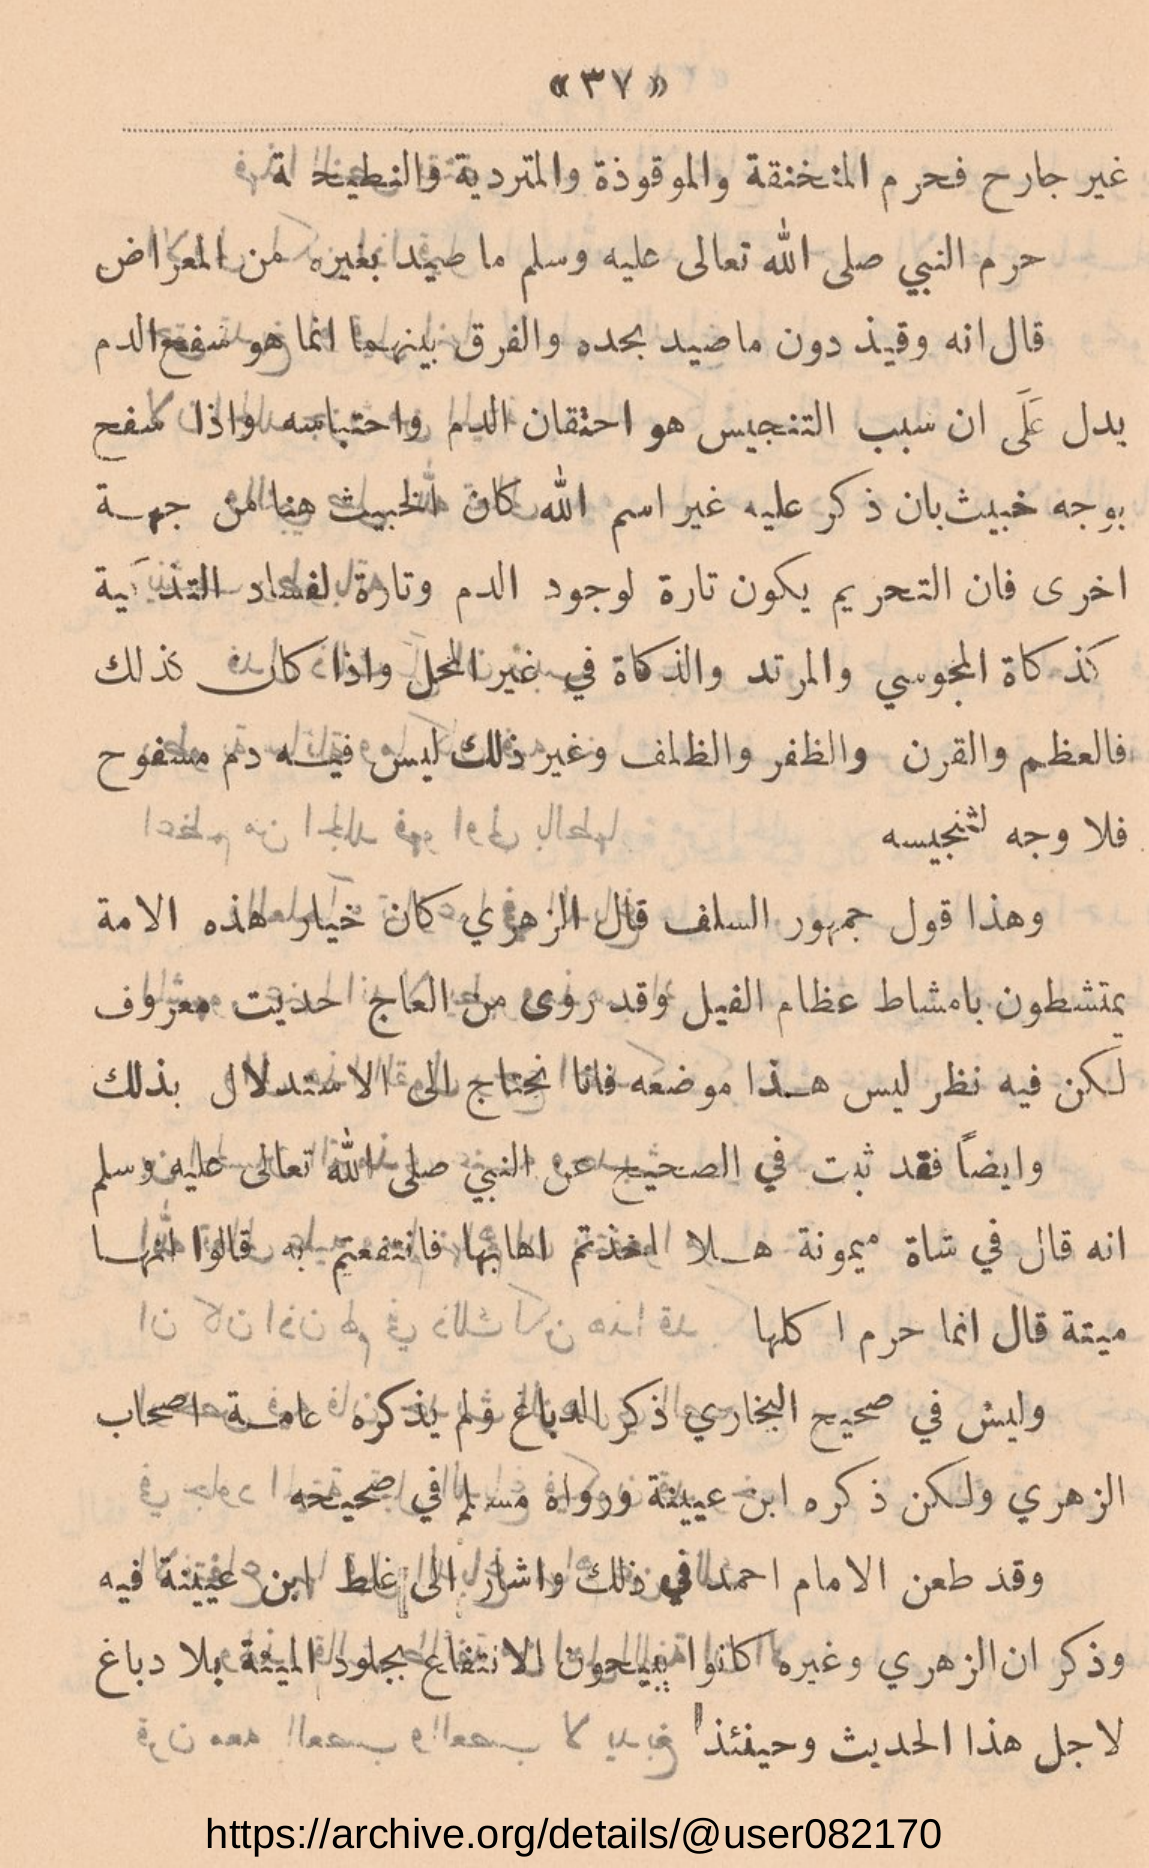 «٣٧»
غير جارح فحرم المنخنقة والموقوذة والمتردية والنطيحة
حرم النبي صلى الله تعالى عليه وسلم ما صيد بغيره من المعراض
قال انه وقيذ دون ما صيد بحده والفرق بينهما انما هو سفح الدم
يدل عَلَى ان سبب التنجيس هو احتقان الدم واحتباسه واذا سفح
بوجه خبيث بان ذكر عليه غير اسم الله كان الخبيث هنا من جهة
اخرى فان التحريم يكون تارة لوجود الدم وتارة لفساد التذكية
كذكاة المجوسي والمرتد والذكاة في غير المحل واذا كان كذلك
فالعظم والقرن والظفر والظلف وغير ذلك ليس فيه دم مسفوح
فلا وجه لتنجيسه
وهذا قول جمهور السلف قال الزهري كان خيار هذه الامة
يمتشطون بامشاط عظام الفيل وقد روى من العاج حديث معروف
لكن فيه نظر ليس هذا موضعه فانا نحتاج الى الاستدلال بذلك
وايضاً فقد ثبت في الصحيح عن النبي صلى الله تعالى عليه وسلم
انه قال في شاة ميمونة هلا اخذتم اهابها فانتفعتم به قالوا انها
ميتة قال انما حرم اكلها
وليس في صحيح البخاري ذكر الدباغ ولم يذكره عامة اصحاب
الزهري ولكن ذكره ابن عيينة ورواه مسلم في صحيحه
وقد طعن الامام احمد في ذلك واشار الى غلط ابن عيينة فيه
وذكر ان الزهري وغيره كانوا يبيحون الانتفاع بجلود الميتة بلا دباغ
لاجل هذا الحديث وحينئذ
https://archive.org/details/@user082170